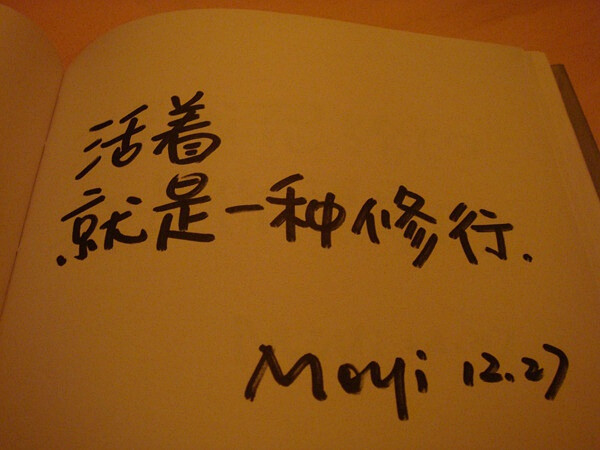 活着
就是一种修行.
Moyi 12.27